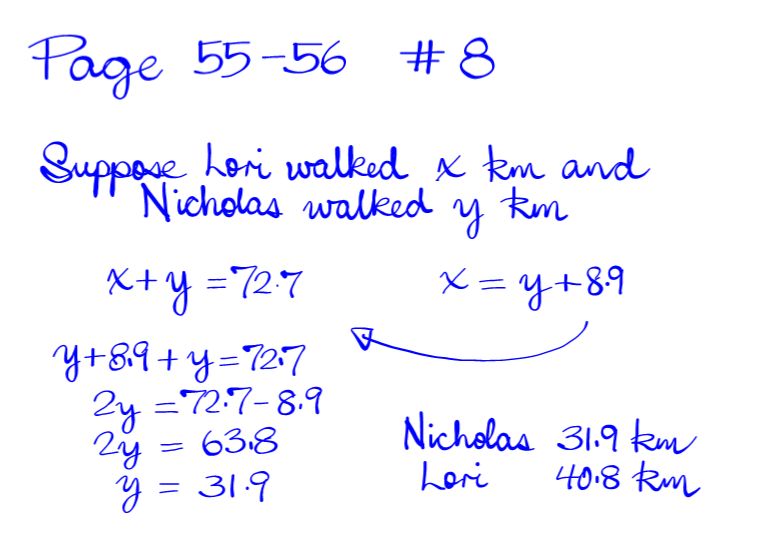 Page 55-56 #8
Suppose Lori walked x km and
Nicholas walked y km
x + y = 72.7
x = y + 8.9
y + 8.9 + y = 72.7
2y = 72.7 - 8.9
2y = 63.8
y = 31.9
Nicholas 31.9 km
Lori 40.8 km